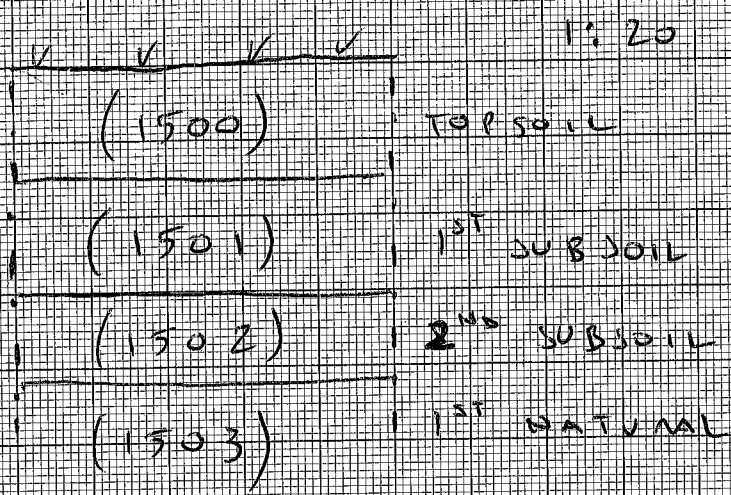 1:20
(1500) TOPSOIL
(1501) 1ST SUBSOIL
(1502) 2ND SUBSOIL
(1503) 1ST NATURAL